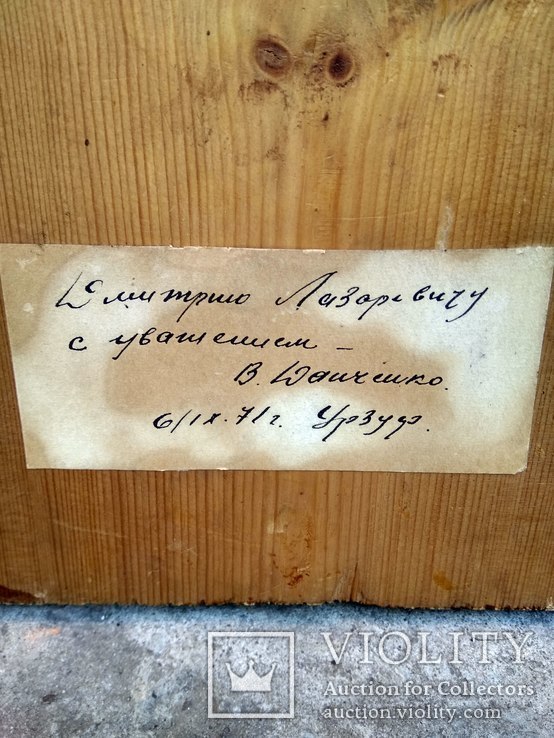 Дмитрию Лазаревичу
с уважением –
В. Данченко.
6/IX.71г. Урзуф.
VIOLITY
Auction for Collectors
auction.violity.com